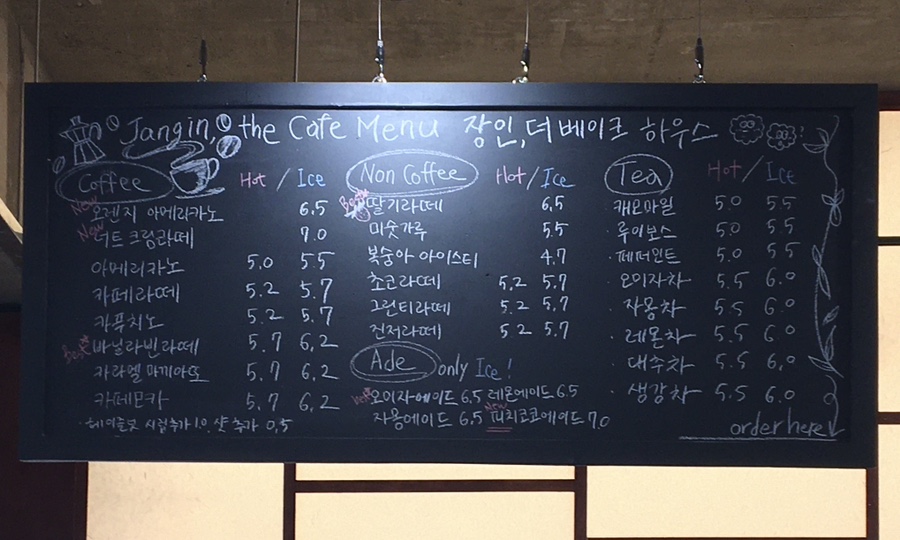 Jangin, the Cafe Menu 장인, 더 베이크 하우스
Coffee Hot / Ice
New 오렌지 아메리카노 6.5
New 너트 크림라떼 7.0
아메리카노 5.0 5.5
카페라떼 5.2 5.7
카푸치노 5.2 5.7
Best 바닐라빈라떼 5.7 6.2
카라멜 마끼아또 5.7 6.2
카페모카 5.7 6.2
· 헤이즐넛 시럽추가 1.0 샷 추가 0.5
Non Coffee Hot / Ice
Best 딸기라떼 6.5
미숫가루 5.5
복숭아 아이스티 4.7
초코라떼 5.2 5.7
그린티라떼 5.2 5.7
진저라떼 5.2 5.7
Ade only Ice!
Best 오미자에이드 6.5 레몬에이드 6.5
자몽에이드 6.5 New 피치코코에이드 7.0
Tea Hot / Ice
캐모마일 5.0 5.5
· 루이보스 5.0 5.5
· 페퍼민트 5.0 5.5
· 오미자차 5.5 6.0
· 자몽차 5.5 6.0
· 레몬차 5.5 6.0
· 대추차 5.5 6.0
· 생강차 5.5 6.0
order here